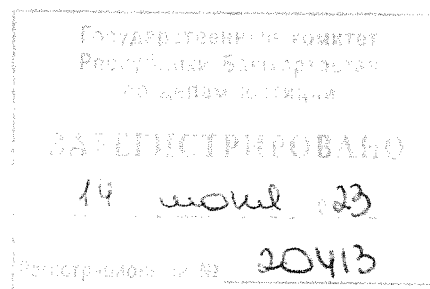 Государственный комитет
Республики Башкортостан
по делам юстиции
ЗАРЕГИСТРИРОВАНО
14 июня 2023
Регистрационный № 20413